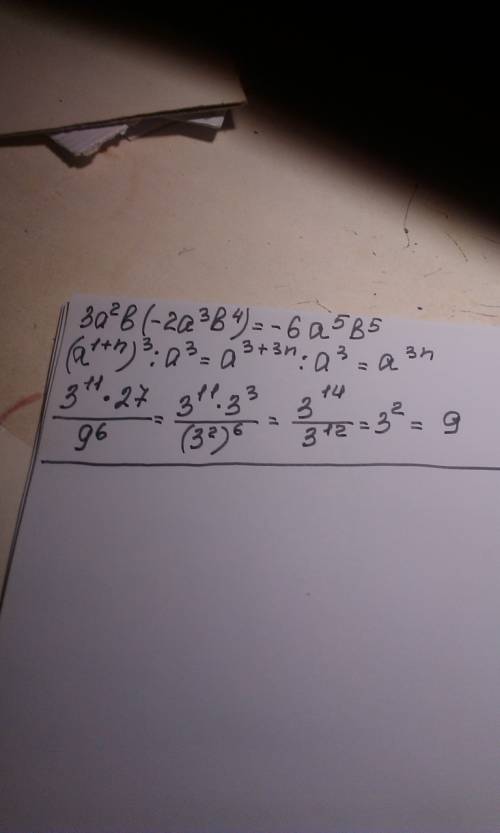 3a²b(-2a³b⁴)=-6a⁵b⁵
(a¹⁺ⁿ)³:a³=a³⁺³ⁿ:a³=a³ⁿ
3¹¹·27/9⁶=3¹¹·3³/(3²)⁶=3¹⁴/3¹²=3²=9